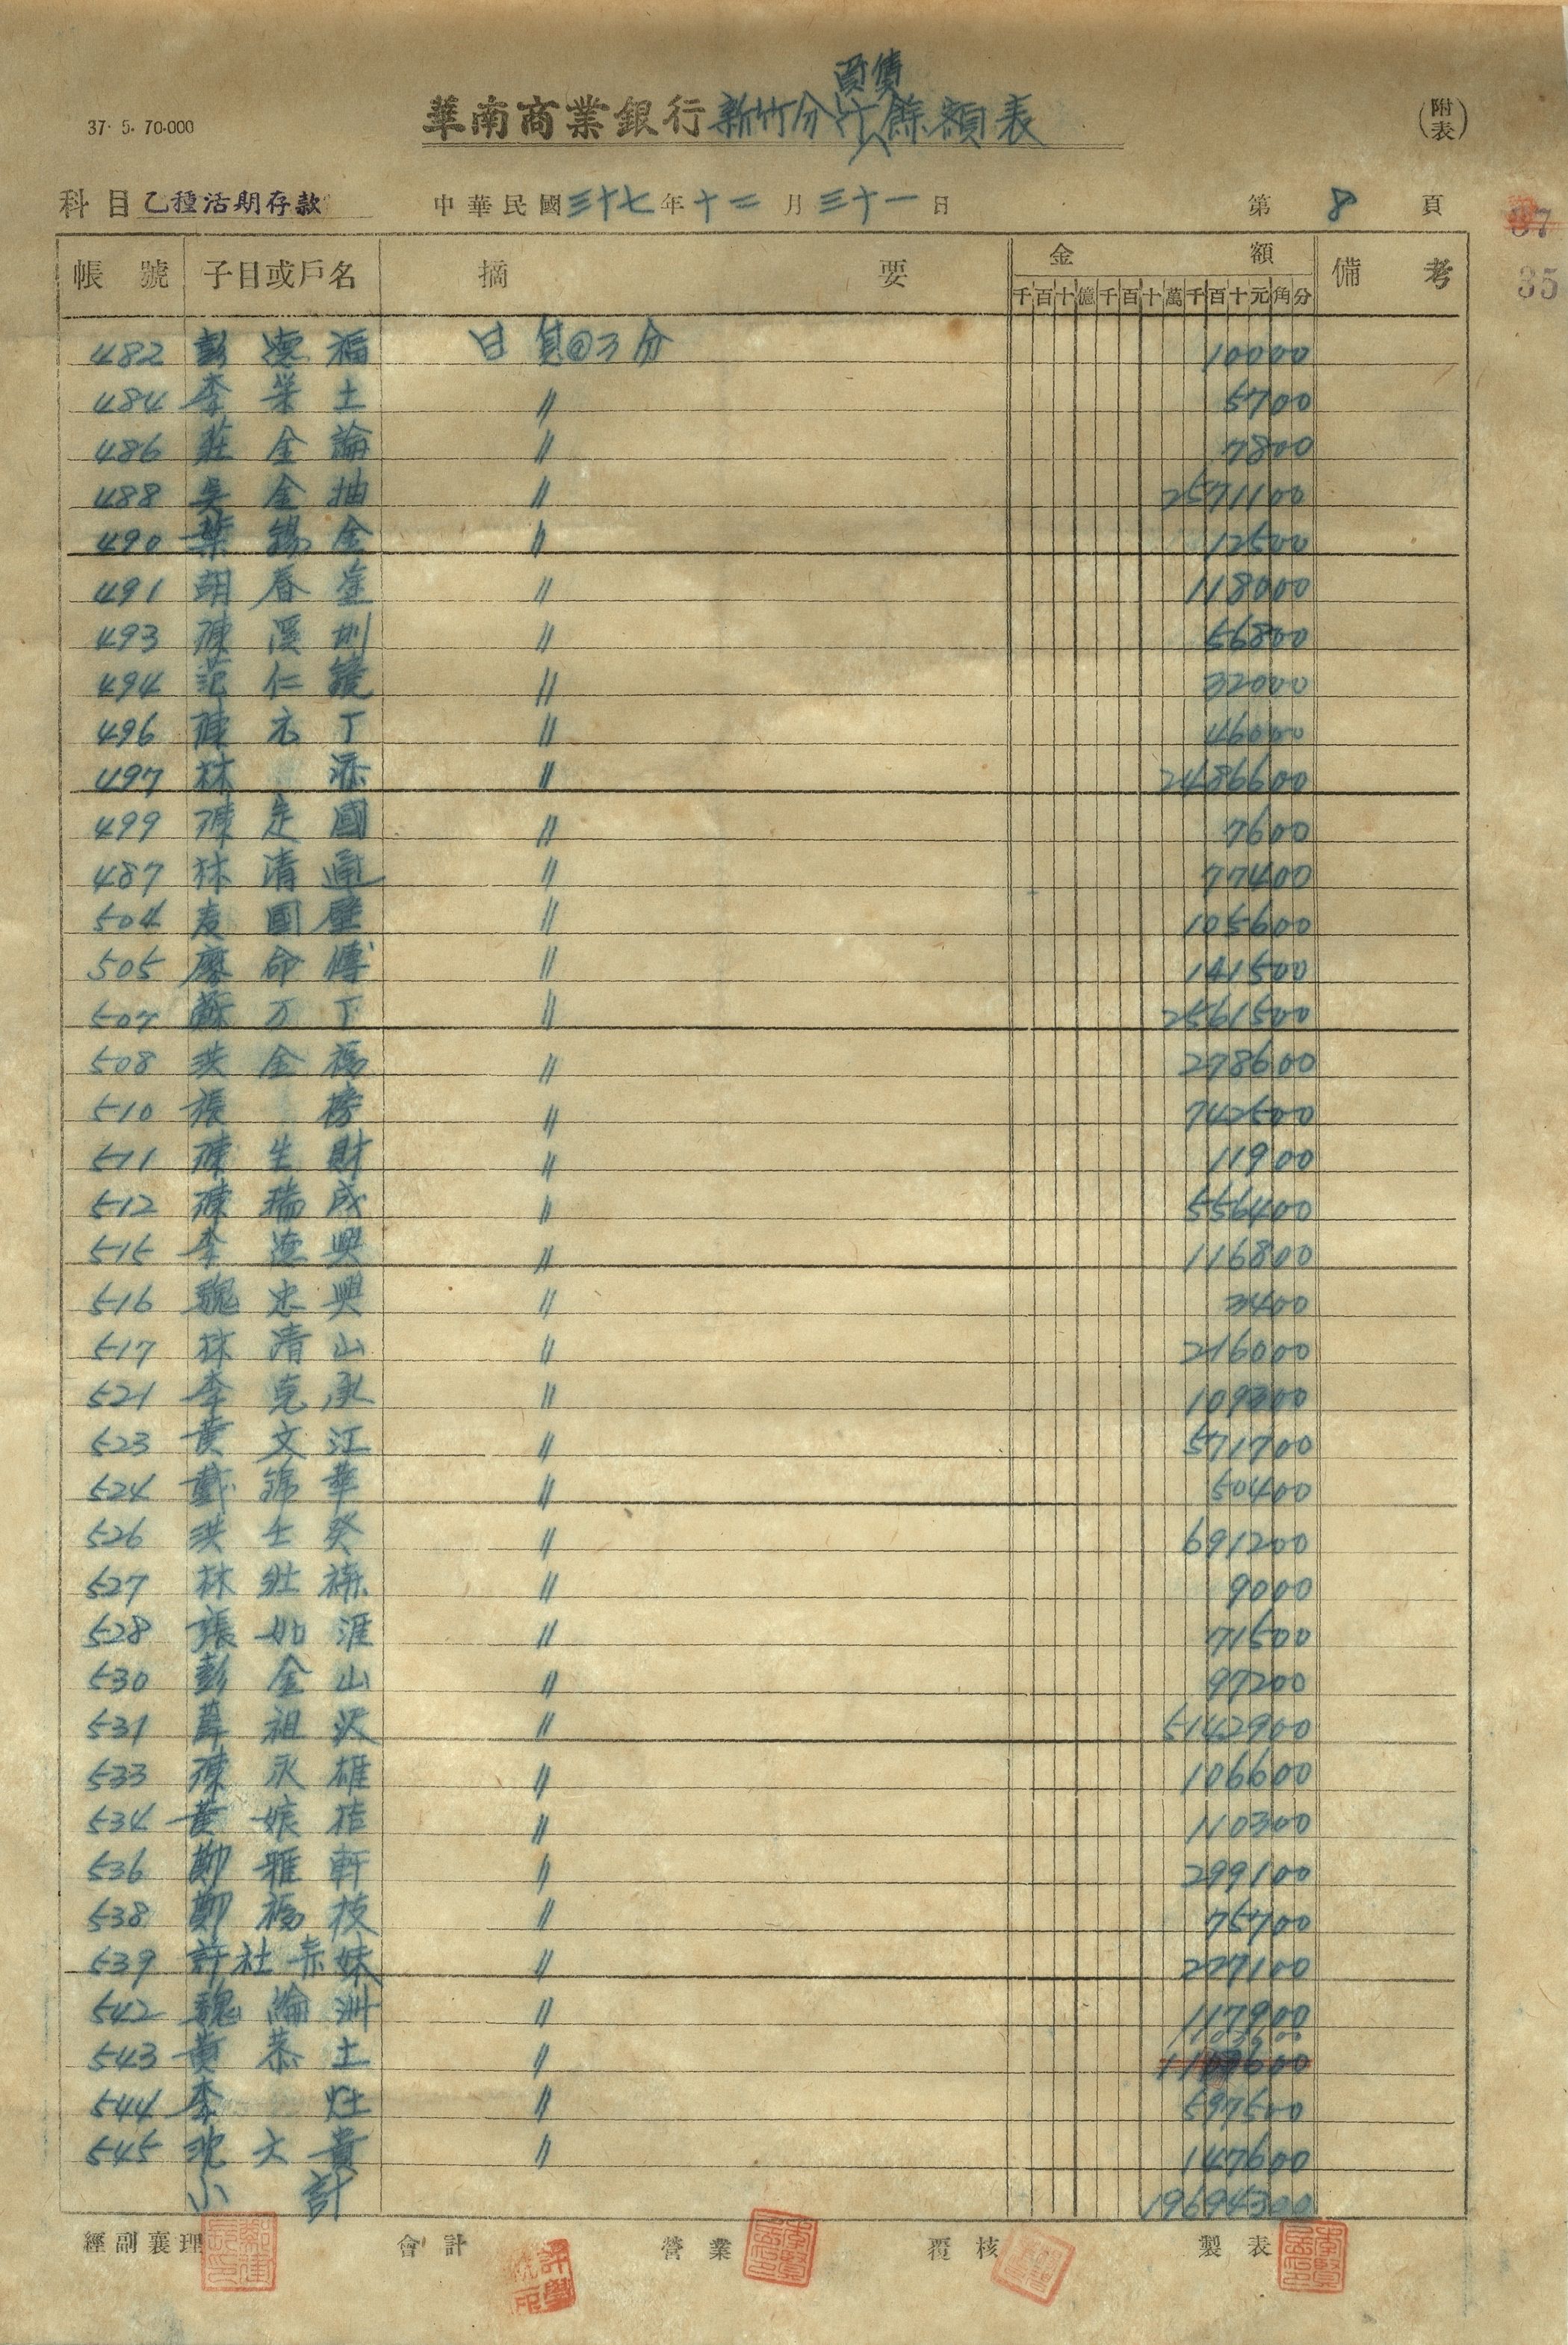 負債
37. 5. 70.000 華南商業銀行新竹分行餘額表 (附表)
科目 乙種活期存款 中華民國三十七年十二月三十一日 第8頁
37
35
帳號 子目或戶名 摘要 金額 備考
千百十億千百十萬千百十元角分
482 彭德福 日息@3分 10000
484 李榮土 〃 5700
486 莊金論 〃 7800
488 吳金抽 〃 2571100
490 葉錫金 〃 12500
491 胡春 〃 118000
493 陳溪圳 〃 56800
494 范仁鏡 〃 32000
496 陳元丁 〃 46000
497 林添 〃 2486600
499 陳定國 〃 7600
487 林清通 〃 77400
504 國 〃 105600
505 廖命 〃 141500
507 蘇万下 〃 2561500
508 洪金福 〃 278600
510 張榜 〃 742500
511 陳生財 〃 11900
512 陳瑞成 〃 556400
515 李遠興 〃 116800
516 魏忠興 〃 3400
517 林清山 〃 216000
521 李克承 〃 109300
523 黃文江 〃 571700
524 戴錦華 〃 50400
526 洪壬癸 〃 691200
527 林壯 〃 9000
528 張如涯 〃 71500
530 彭金山 〃 97200
531 祖沢 〃 5142900
533 陳永雄 〃 106600
534 黃娘桂 〃 110300
536 鄭雅軒 〃 299100
538 鄭福枝 〃 75700
539 許杜赤妹 〃 227100
542 魏綸洲 〃 117900
543 黃恭土 〃
544 李灶 〃 597500
545 沈大貴 〃 147600
小計 19694300
經副襄理 會計 營業 覆核 製表